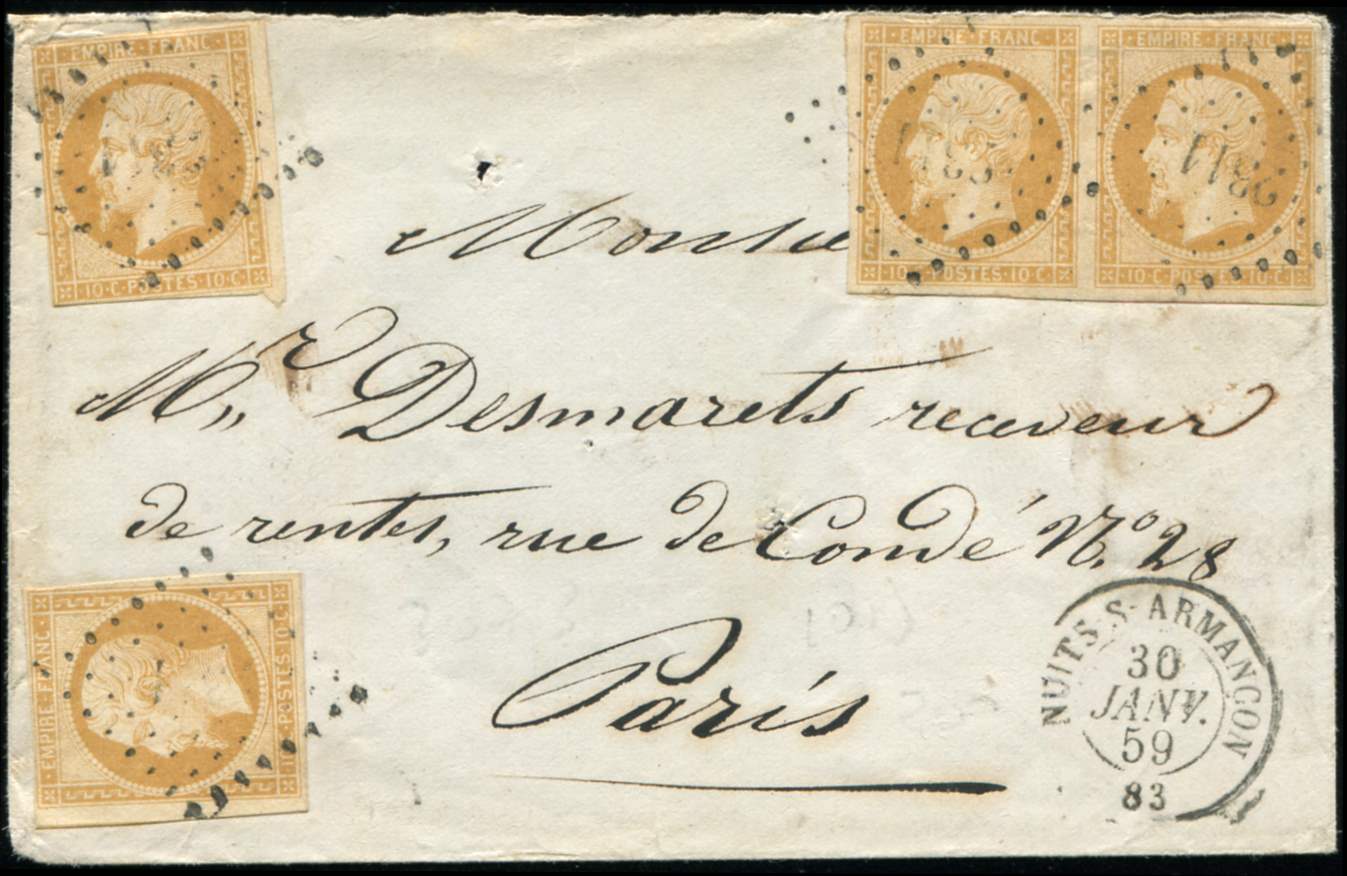 EMPIRE·FRANC·
10·C·POSTES·10·C·
EMPIRE·FRANC·
10·C·POSTES·10·C·
EMPIRE·FRANC·
10·C·POSTES·10·C·
2811
Monsie
Mr Desmarets receveur
de rentes, rue de Condé N.º 28
Paris
EMPIRE·FRANC·
10·C·POSTES·10·C·
NUITS-S-ARMANCON
30
JANV.
59
83